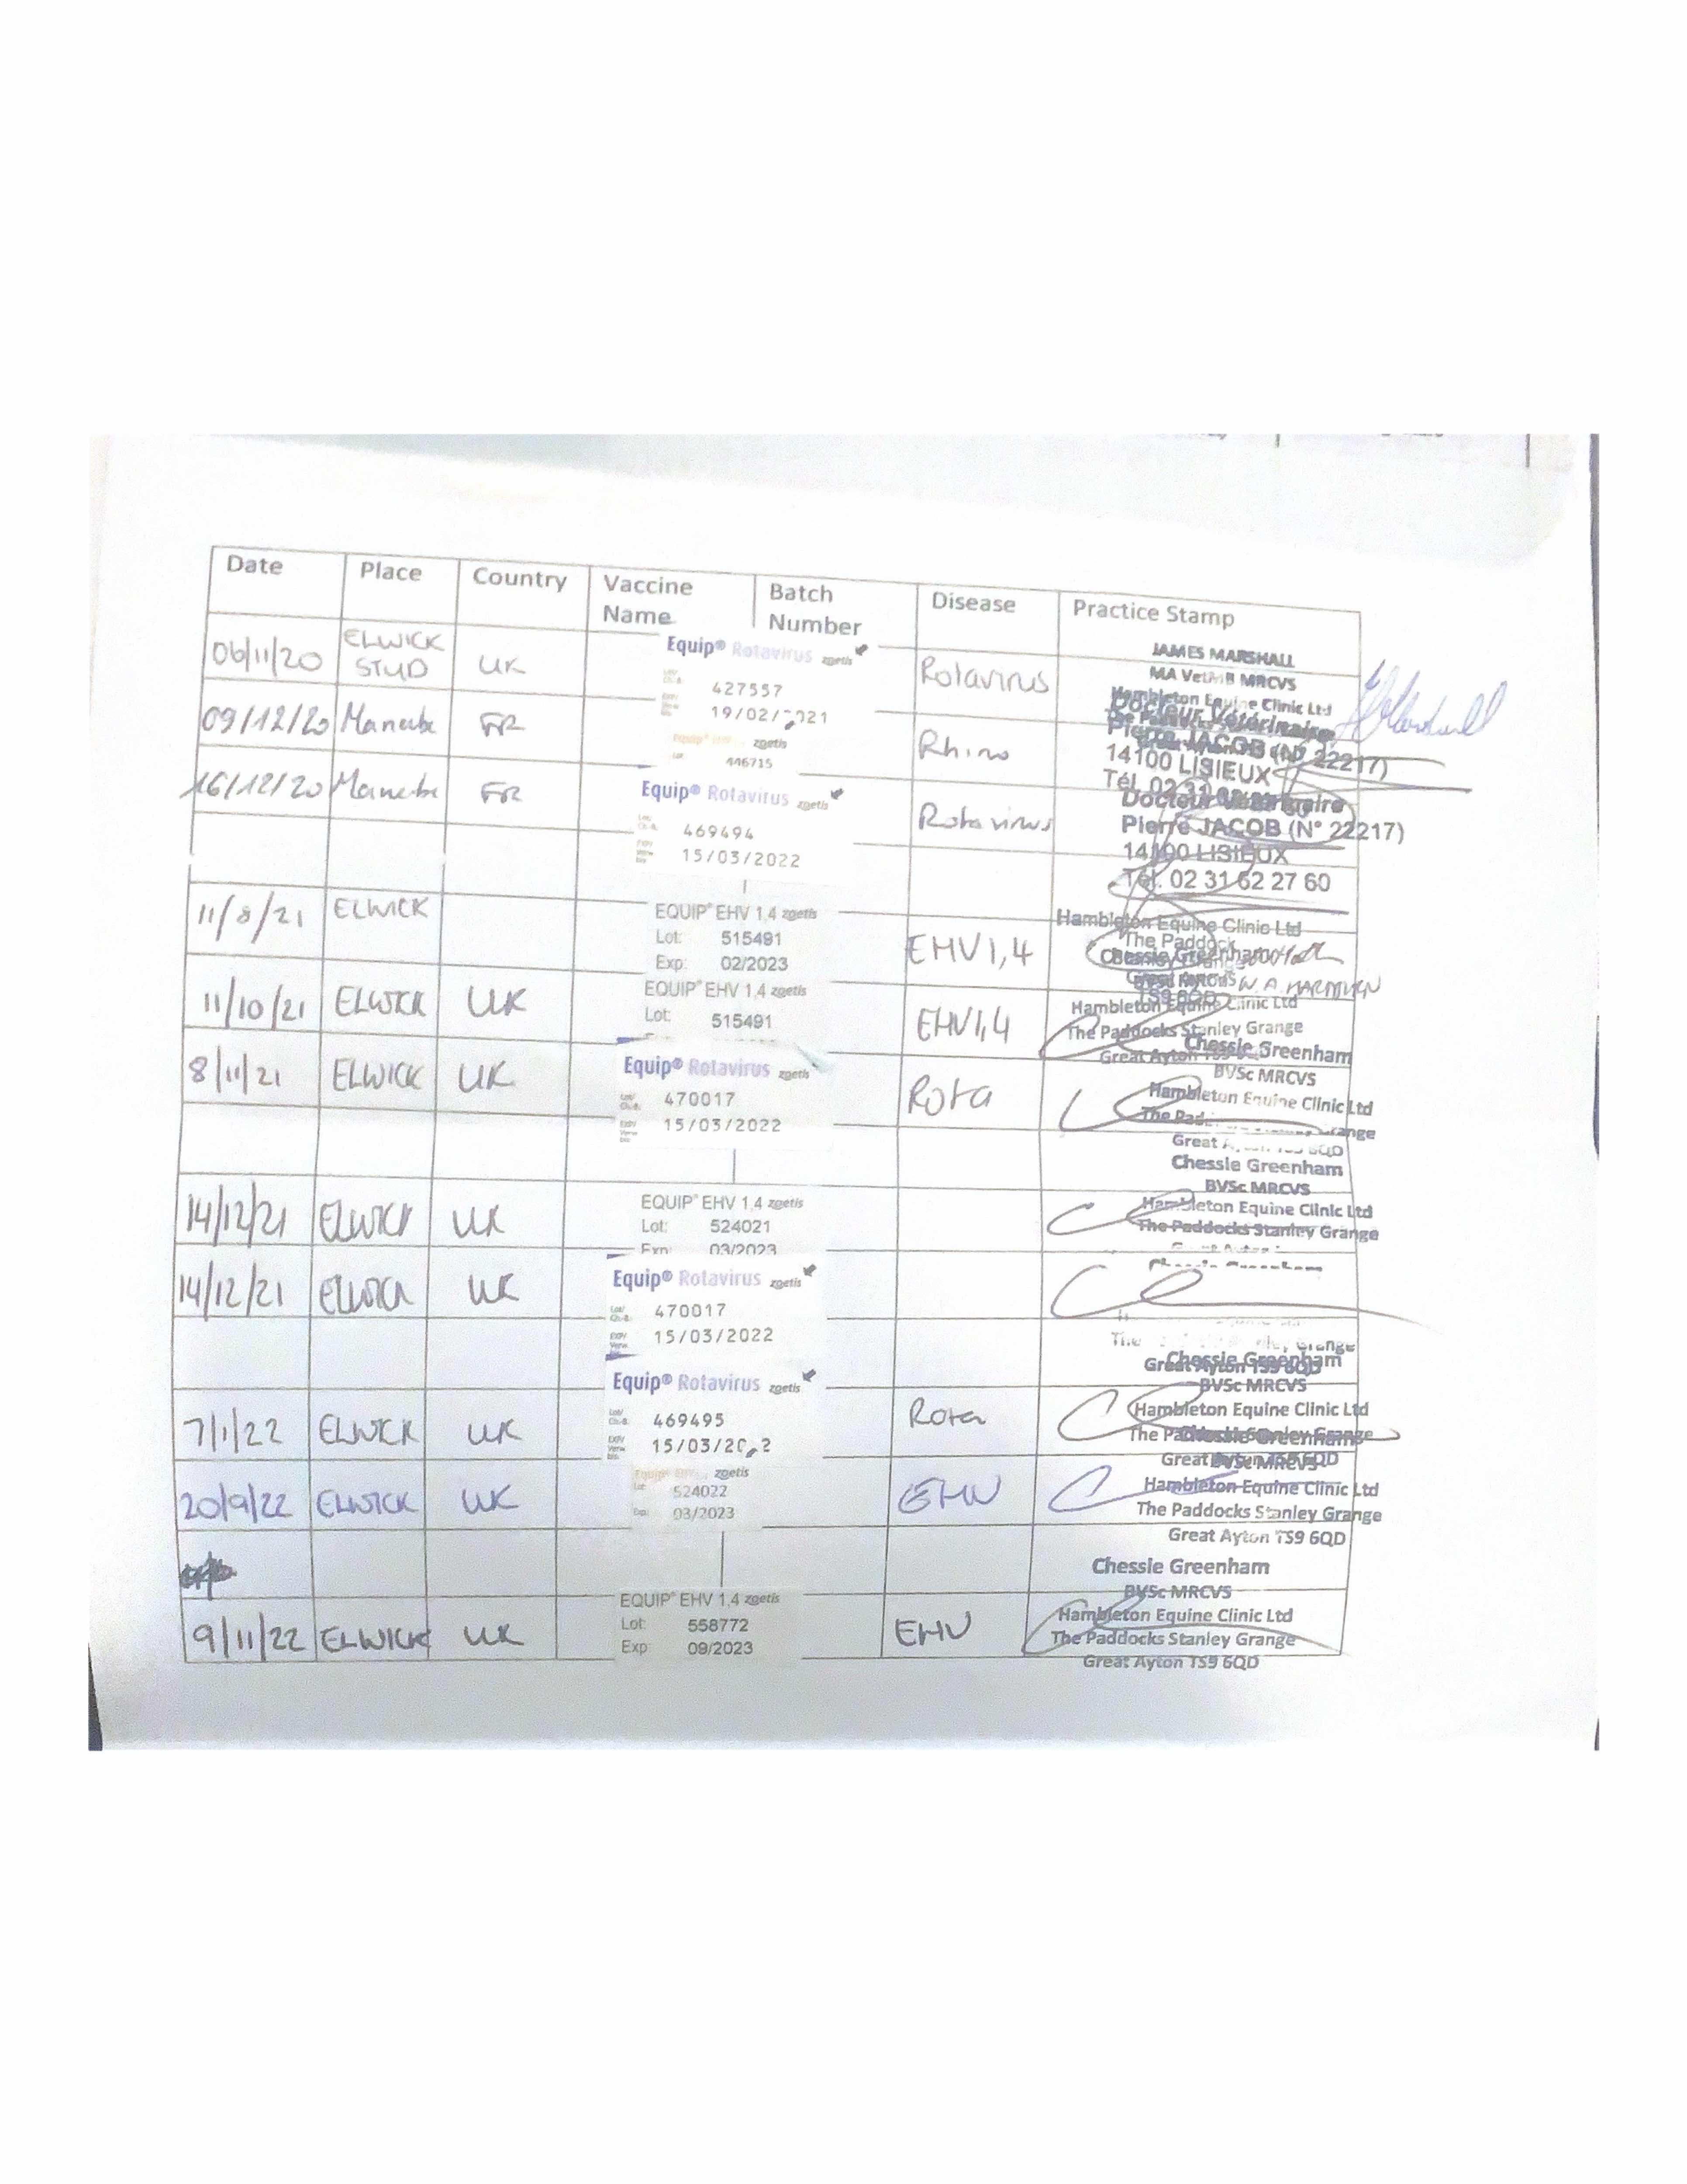 Date Place Country Vaccine Name Batch Number Disease Practice Stamp
06/11/20 ELWICK STUD UK Equip® Rotavirus zoetis 427557 19/02/2021 Rotavirus JAMES MARSHALL
MA VetMB MRCVS
Hambleton Equine Clinic Ltd
09/12/20 FR zoetis 446715 Rhino Docteur Vétérinaire
Pierre JACOB (N° 22217)
14100 LISIEUX
Tél. 02 31
16/12/20 FR Equip® Rotavirus zoetis 469494 15/03/2022 Rotavirus Docteur Vétérinaire
Pierre JACOB (N° 22217)
14100 LISIEUX
Tél. 02 31 62 27 60
11/8/21 ELWICK EQUIP® EHV 1,4 zoetis
Lot: 515491
Exp: 02/2023
EHV1,4 Hambleton Equine Clinic Ltd
The Paddock
Chessie Greenham
11/10/21 ELWICK UK EQUIP® EHV 1,4 zoetis
Lot: 515491
EHV1,4 Hambleton Equine Clinic Ltd
The Paddocks Stanley Grange
Great Ayton
8/11/21 ELWICK UK Equip® Rotavirus zoetis 470017 15/03/2022 Rota Chessie Greenham
BVSc MRCVS
Hambleton Equine Clinic Ltd
Grange
Great 6QD
14/12/21 ELWICK UK EQUIP® EHV 1,4 zoetis
Lot: 524021
Exp: 03/2023
Chessie Greenham
BVSc MRCVS
Hambleton Equine Clinic Ltd
The Paddocks Stanley Grange
14/12/21 ELWICK UK Equip® Rotavirus zoetis 470017 15/03/2022
Grange
Great Ayton TS9 6QD
7/1/22 ELWICK UK Equip® Rotavirus zoetis 469495 15/03/2022 Rota Chessie Greenham
BVSc MRCVS
Hambleton Equine Clinic Ltd
20/9/22 ELWICK UK zoetis 524022 03/2023 EHV Chessie Greenham
BVSc MRCVS
Hambleton Equine Clinic Ltd
The Paddocks Stanley Grange
Great Ayton TS9 6QD
9/11/22 ELWICK UK EQUIP® EHV 1,4 zoetis
Lot: 558772
Exp: 09/2023
EHV Chessie Greenham
BVSc MRCVS
Hambleton Equine Clinic Ltd
The Paddocks Stanley Grange
Great Ayton TS9 6QD